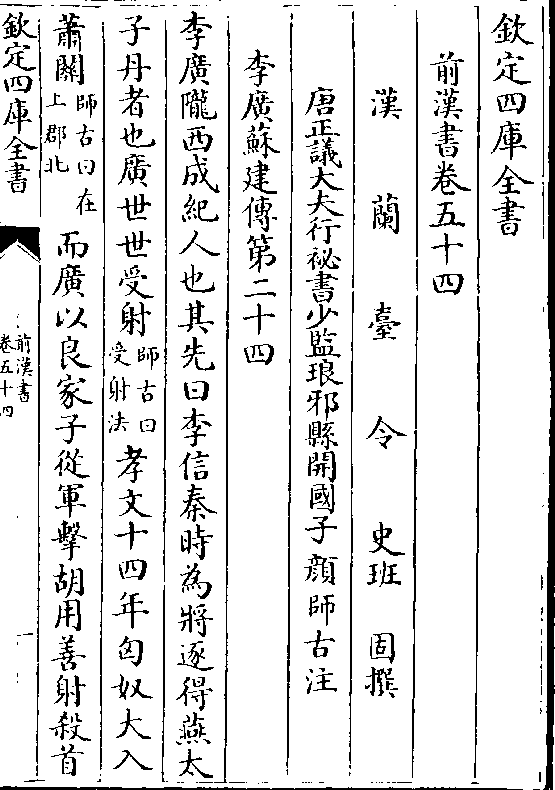 欽定四庫全書
前漢書卷五十四
漢蘭臺令史班固撰
唐正議大夫行祕書少監琅邪縣開國子顏師古注
李廣蘇建傳第二十四
李廣隴西成紀人也其先曰李信秦時為將逐得燕太
子丹者也廣世世受射師古曰受射法孝文十四年匈奴大入
蕭關師古曰在上郡北而廣以良家子從軍擊胡用善射殺首
欽定四庫全書
前漢書
卷五十四
一